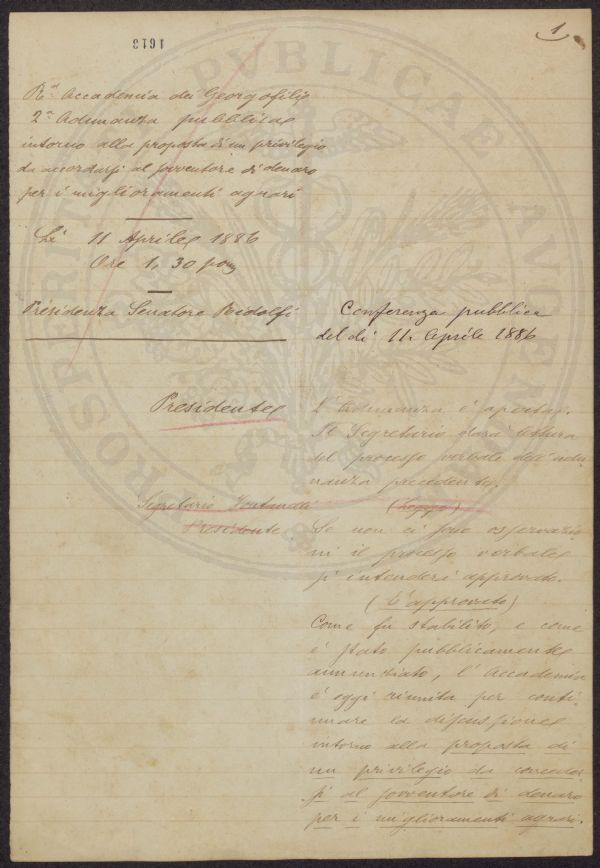 1613
1
Rª Accademia dei Georgofili
2ª Adunanza pubblica
intorno alla proposta di un privilegio
da accordarsi al sovventore di denaro
per i miglioramenti agrari
Li 11 Aprile 1886
Ore 1,30 pom
Presidenza Senatore Ridolfi
Conferenza pubblica
del dì 11 Aprile 1886
Presidente
L'Adunanza è aperta.
Il Segretario darà lettura
del processo verbale dell'adu-
nanza precedente.
Segretario
(Legge)
Presidente
Se non ci sono osservazio
ni il processo verbale
s'intenderà approvato.
(È approvato)
Come fu stabilito, e come
è stato pubblicamente
annunziato, l'Accademia
è oggi riunita per conti-
nuare la discussione
intorno alla proposta di
un privilegio da conceder
si al sovventore di denaro
per i miglioramenti agrari.
PROSPERITATI PUBLICAE AUGENDAE